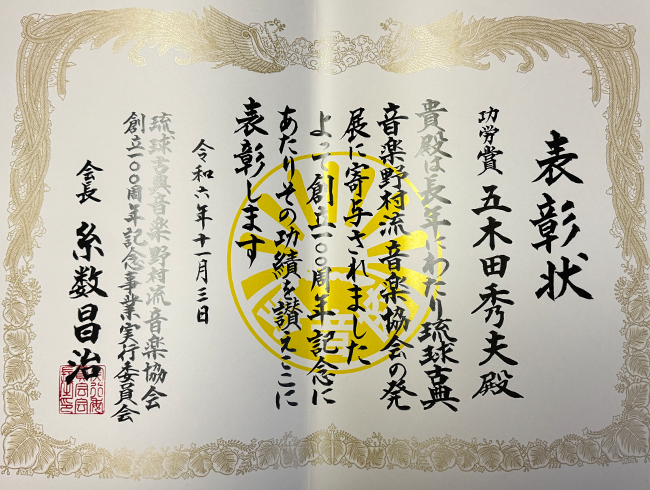 表彰状
功労賞 五木田秀夫殿
貴殿は長年にわたり琉球古典
音楽野村流音楽協会の発
展に寄与されました
よって創立一〇〇周年記念に
あたりその功績を讃えここに
表彰します
令和六年十一月三日
琉球古典音楽野村流音楽協会
創立一〇〇周年記念事業実行委員会
会長 糸数昌治